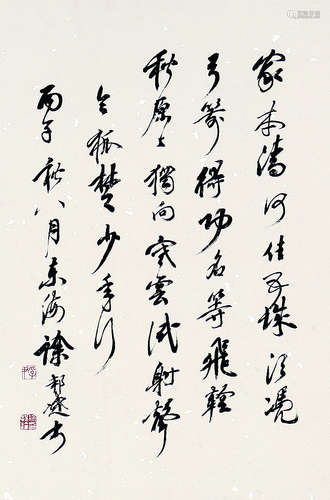 家本清河住五城須憑
弓箭得功名等飛鞚
秋原上獨向寒雲試射聲
令狐楚少年行
丙子秋八月東海徐邦達書